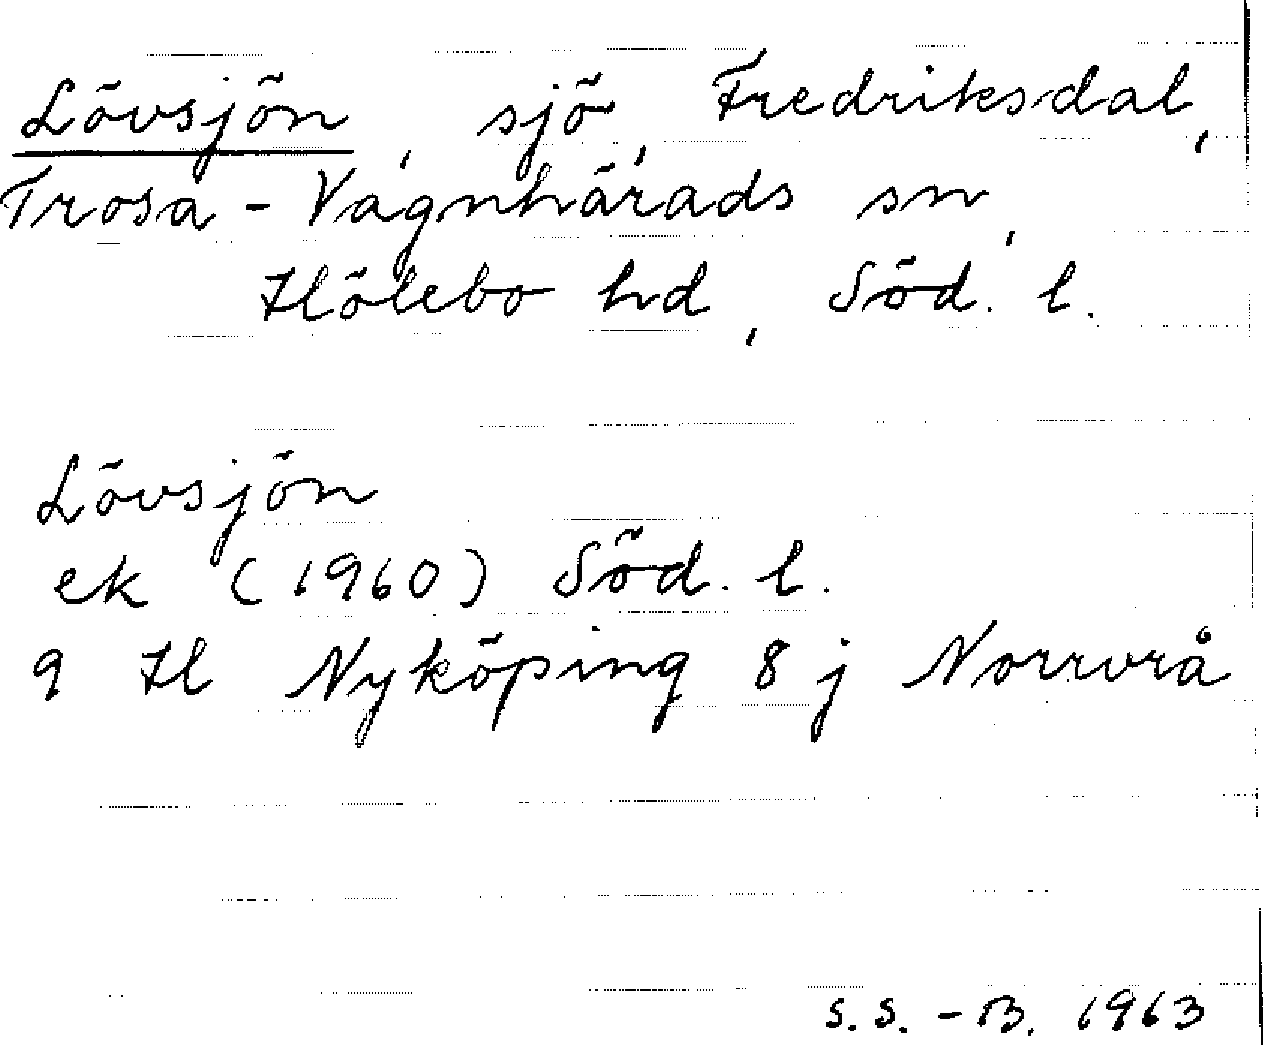 Lövsjön, sjö, Fredriksdal,
Trosa-Vagnhärads sn,
Hölebo hd, Söd. l.
Lövsjön
ek (1960) Söd. l.
9 H Nyköping 8 j Norrvrå
S.S.-B. 1963